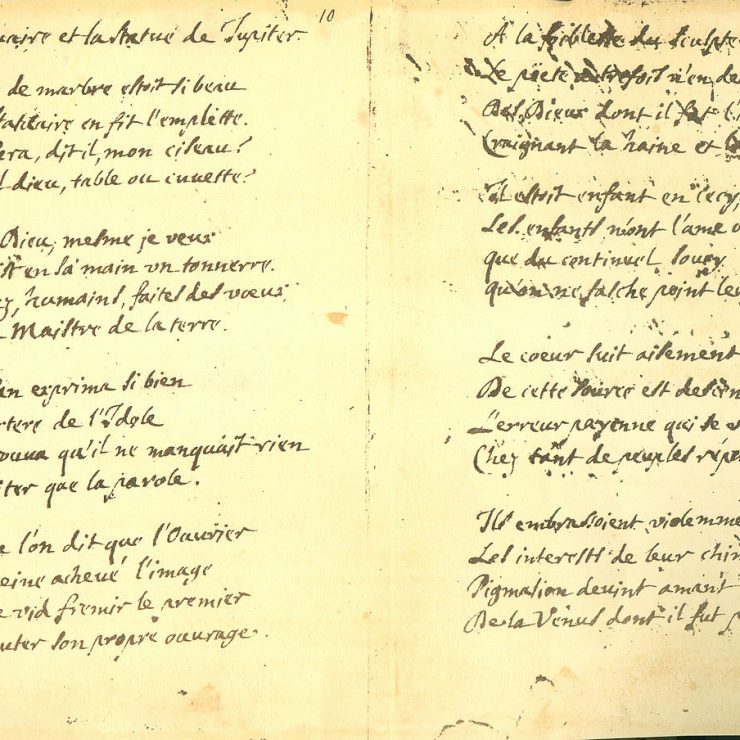 10
et la statue de Jupiter
de marbre estoit si beau
en fit l'emplette.
dit il, mon ciseau?
dieu, table ou cuvette?
Dieu, mesme je veus
en sa main un tonnerre.
humains, faites des vœux
Maistre de la terre.
exprima si bien
de l'Idole
qu'il ne manquait rien
que la parole.
l'on dit que l'Ouvrier
achevé l'image
vid fremir le premier
son propre ouvrage.
A la foiblesse du
Le poete autrefois n'en
Des Dieux dont il fut
Craignant la haine et
Il estoit enfant en cecy,
Les enfants n'ont l'ame
que du continuel soucy
qu'on ne fasche point
Le coeur suit aisement
De cette source est
L'erreur payenne qui se
Chez tant de peuples
Ils embrassoient
Les interests de leur
Pigmalion devint amant
De la Venus dont il fut